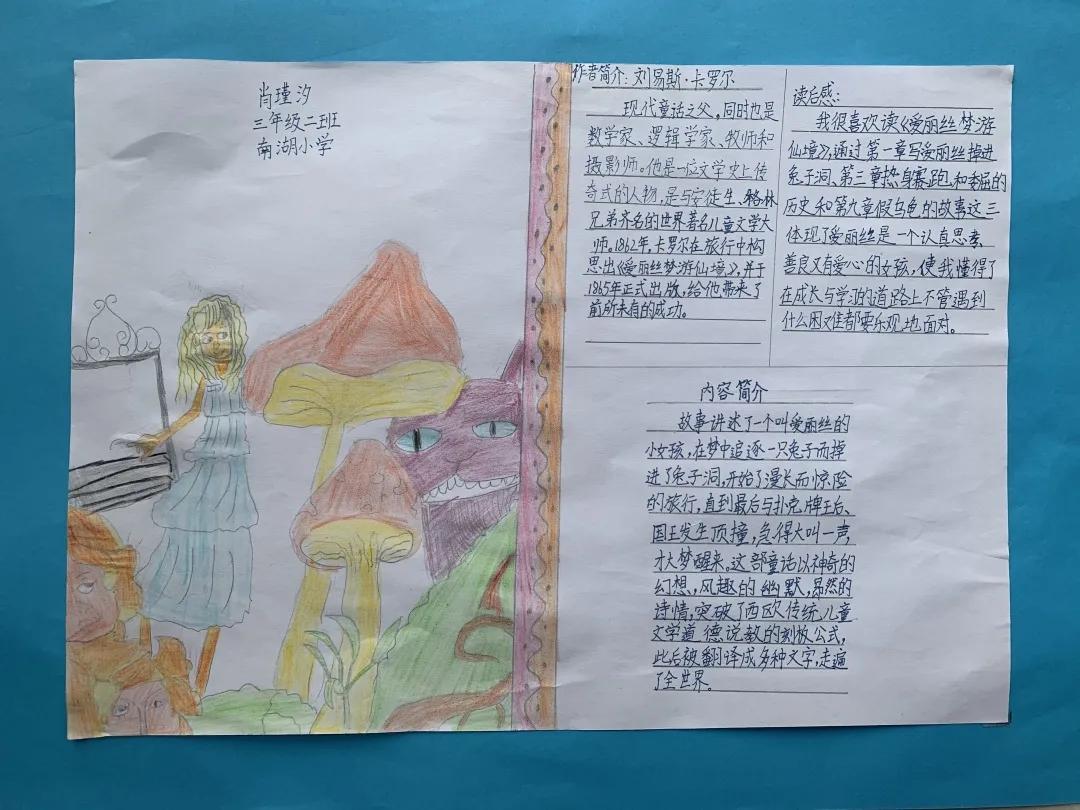 肖瑾汐
三年级二班
南湖小学
作者简介:刘易斯·卡罗尔
现代童话之父,同时也是
数学家、逻辑学家、牧师和
摄影师。他是一位文学史上传
奇式的人物,是与安徒生、格林
兄弟齐名的世界著名儿童文学大
师。1862年,卡罗尔在旅行中构
思出《爱丽丝梦游仙境》,并于
1865年正式出版,给他带来了
前所未有的成功。
读后感:
我很喜欢读《爱丽丝梦游
仙境》,通过第一章写爱丽丝掉进
兔子洞、第三章热身赛跑和委屈的
历史和第九章假乌龟的故事这三
体现了爱丽丝是一个认真思考、
善良又有爱心的女孩,使我懂得了
在成长与学习的道路上不管遇到
什么困难都要乐观地面对。
内容简介
故事讲述了一个叫爱丽丝的
小女孩,在梦中追逐一只兔子而掉
进了兔子洞,开始了漫长而惊险
的旅行,直到最后与扑克牌王后、
国王发生顶撞,急得大叫一声,
才大梦醒来。这部童话以神奇的
幻想,风趣的幽默,昂然的
诗情,突破了西欧传统儿童
文学道德说教的刻板公式,
此后被翻译成多种文字,走遍
了全世界。